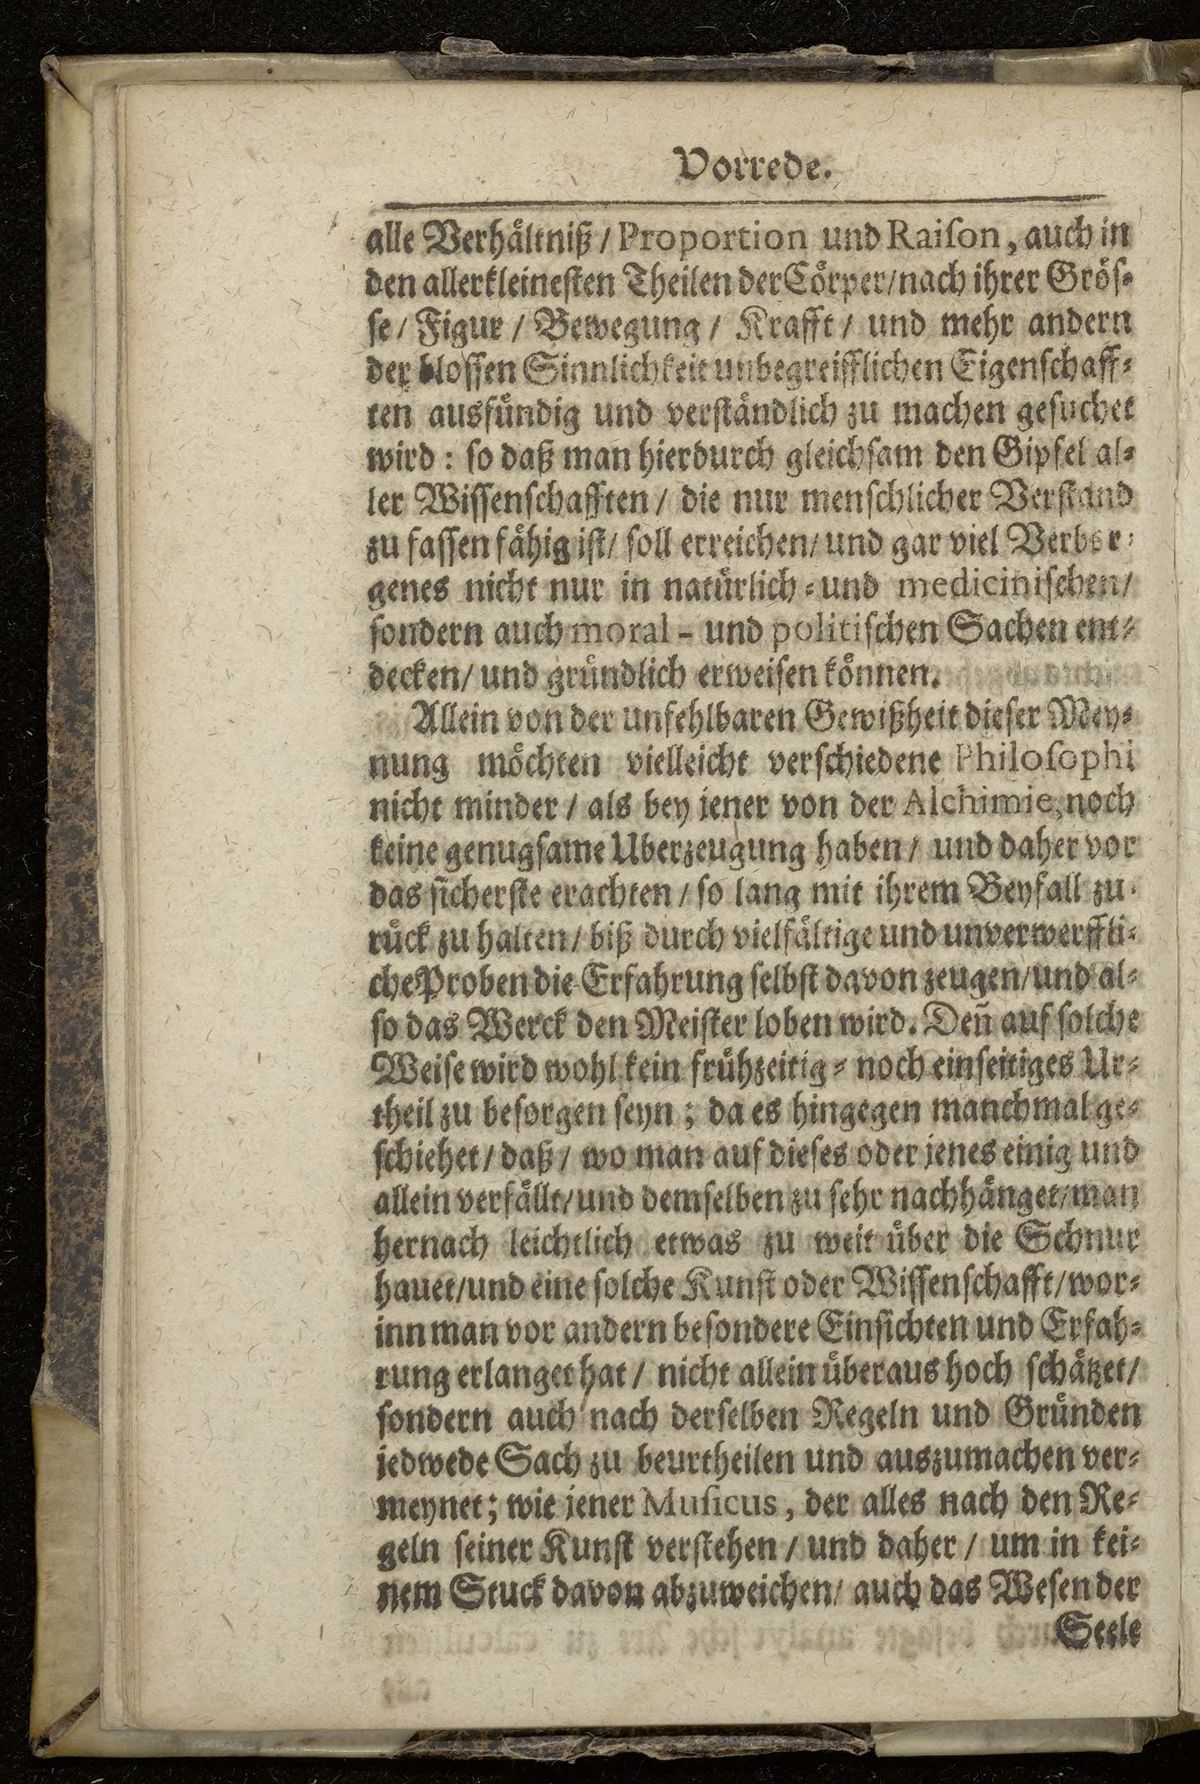 Vorrede.
alle Verhältniß / Proportion und Raiſon, auch in
den allerkleineſten Theilen der Cörper/nach ihrer Gröſ-
ſe / Figur / Bewegung / Krafft / und mehr andern
der bloſſen Sinnlichkeit unbegreifflichen Eigenſchaff-
ten ausfündig und verſtändlich zu machen geſuchet
wird : ſo daß man hierdurch gleichſam den Gipfel al-
ler Wiſſenſchafften / die nur menſchlicher Verſtand
zu faſſen fähig iſt/ ſoll erreichen/ und gar viel Verbor-
genes nicht nur in natürlich- und mediciniſchen/
ſondern auch moral- und politiſchen Sachen ent-
decken/ und gründlich erweiſen können.
Allein von der unfehlbaren Gewißheit dieſer Mey-
nung möchten vielleicht verſchiedene Philoſophi
nicht minder / als bey jener von der Alchimie, noch
keine genugſame Uberzeugung haben / und daher vor
das ſicherſte erachten / ſo lang mit ihrem Beyfall zu-
rück zu halten / biß durch vielfältige und unverwerffli-
che Proben die Erfahrung ſelbſt davon zeugen/und al-
ſo das Werck den Meiſter loben wird. Deñ auf ſolche
Weiſe wird wohl kein frühzeitig- noch einſeitiges Ur-
theil zu beſorgen ſeyn ; da es hingegen manchmal ge-
ſchiehet / daß / wo man auf dieſes oder jenes einig und
allein verfällt/und demſelben zu ſehr nachhänget/man
hernach leichtlich etwas zu weit über die Schnur
hauet/und eine ſolche Kunſt oder Wiſſenſchafft/wor-
inn man vor andern beſondere Einſichten und Erfah-
rung erlanget hat / nicht allein überaus hoch ſchätzet/
ſondern auch nach derſelben Regeln und Gründen
jedwede Sach zu beurtheilen und auszumachen ver-
meynet; wie jener Muſicus, der alles nach den Re-
geln ſeiner Kunſt verſtehen / und daher / um in kei-
nem Stuck davon abzuweichen/ auch das Weſen der
Seele